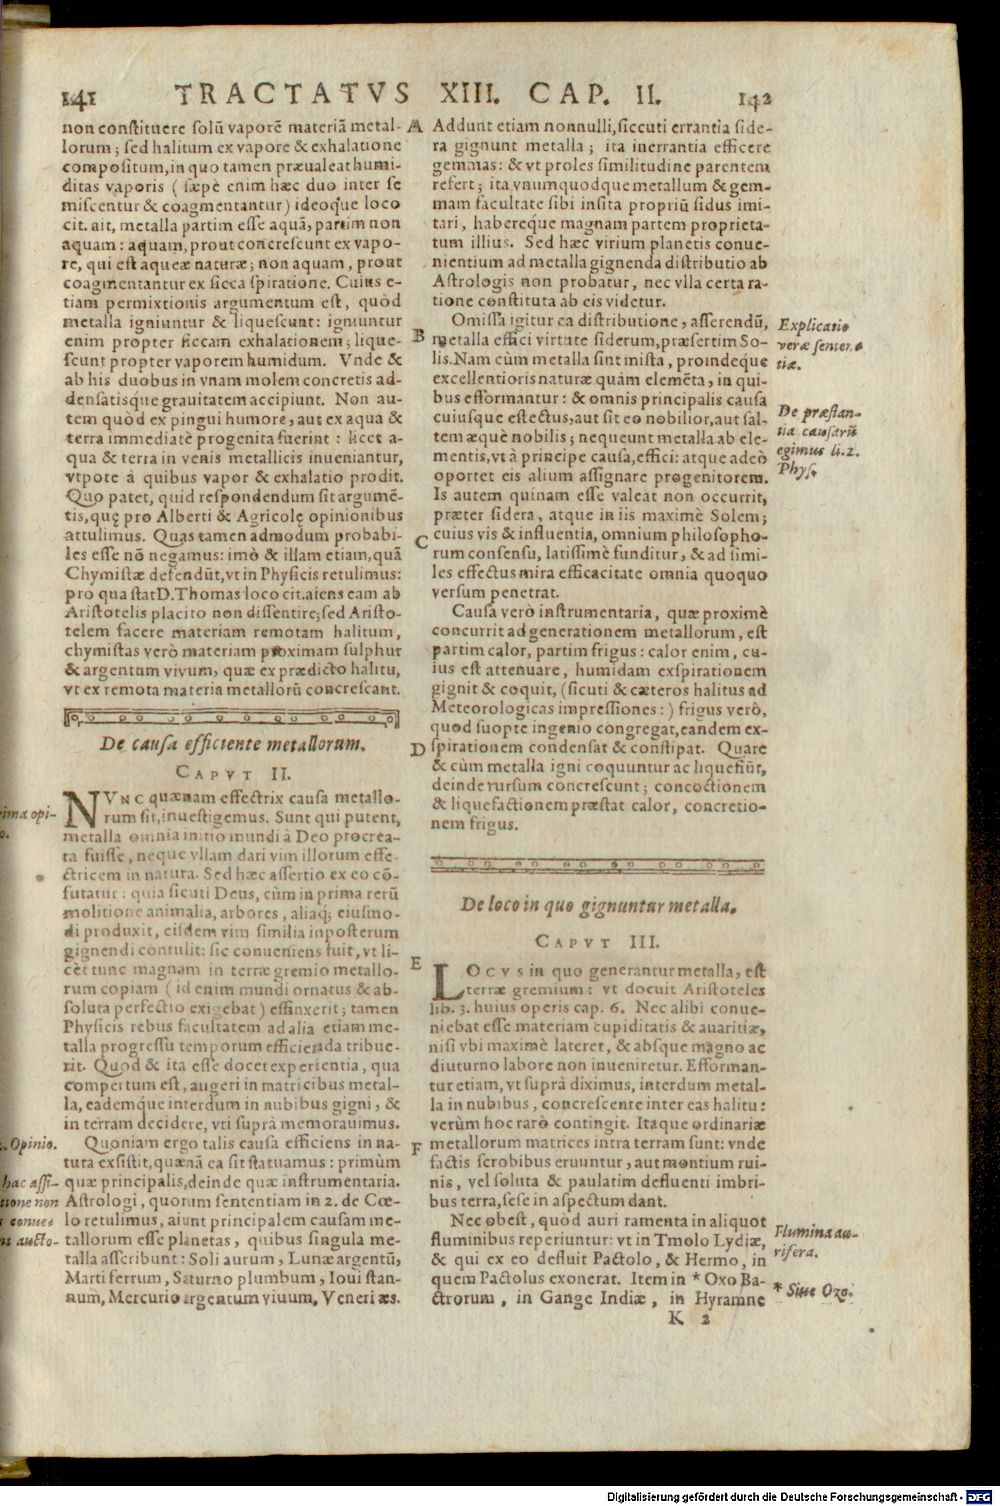 141 TRACTATVS XIII. CAP. II. 142
non constituere solũ vaporẽ materiã metal-
lorum; sed halitum ex vapore & exhalatione
compositum, in quo tamen præualeat humi-
ditas vaporis (sæpè enim hæc duo inter se
miscentur & coagmentantur) ideoque loco
cit. ait, metalla partim esse aquã, partim non
aquam: aquam, prout concrescunt ex vapo-
re, qui est aqueæ naturæ; non aquam, prout
coagmentantur ex sicca spiratione. Cuius e-
tiam permixtionis argumentum est, quòd
metalla igniuntur & liquescunt: igniuntur
enim propter siccam exhalationem; lique-
scunt propter vaporem humidum. Vnde &
ab his duobus in vnam molem concretis ad-
densatisque grauitatem accipiunt. Non au-
tem quòd ex pingui humore, aut ex aqua &
terra immediatè progenita fuerint: licet a-
qua & terra in venis metallicis inueniantur,
vtpote à quibus vapor & exhalatio prodit.
Quo patet, quid respondendum sit argumẽ-
tis, quę pro Alberti & Agricolę opinionibus
attulimus. Quas tamen admodum probabi-
les esse nõ negamus: imò & illam etiam, quã
Chymistæ defendũt, vt in Physicis retulimus:
pro qua stat D. Thomas loco cit. aiens eam ab
Aristotelis placito non dissentire; sed Aristo-
telem facere materiam remotam halitum,
chymistas verò materiam proximam sulphur
& argentum vivum, quæ ex prædicto halitu,
vt ex remota materia metallorũ concrescant.
De causa efficiente metallorum.
CAPVT II.
NVNC quænam effectrix causa metallo-
rum sit, inuestigemus. Sunt qui putent,
metalla omnia initio mundi à Deo procrea-
ta fuisse, neque vllam dari vim illorum effe-
ctricem in natura. Sed hæc assertio ex eo cõ-
futatur: quia sicuti Deus, cùm in prima rerũ
molitione animalia, arbores, aliaq; eiusmo-
di produxit, eisdem vim similia in posterum
gignendi contulit: sic conueniens fuit, vt li-
cèt tunc magnam in terræ gremio metallo-
rum copiam (id enim mundi ornatus & ab-
soluta perfectio exigebat) effinxerit; tamen
Physicis rebus facultatem ad alia etiam me-
talla progressu temporum efficienda tribue-
rit. Quod & ita esse docet experientia, qua
compertum est, augeri in matricibus metal-
la, eademque interdum in nubibus gigni, &
in terram decidere, vti suprà memorauimus.
Quoniam ergo talis causa efficiens in na-
tura exsistit, quænã ea sit statuamus: primùm
quæ principalis, deinde quæ instrumentaria.
Astrologi, quorum sententiam in 2. de Cœ-
lo retulimus, aiunt principalem causam me-
tallorum esse planetas, quibus singula me-
talla asscribunt: Soli aurum, Lunæ argentũ,
Marti ferrum, Saturno plumbum, Ioui stan-
num, Mercurio argentum viuum, Veneri æs.
ima opi-
o.
. Opinio.
hac assi-
tione non
conue
aucto-
A
B
C
D
E
F
Addunt etiam nonnulli, siccuti errantia side-
ra gignunt metalla; ita inerrantia efficere
gemmas: & vt proles similitudine parentem
refert; ita vnumquodque metallum & gem-
mam facultate sibi insita propriũ sidus imi-
tari, habereq́ue magnam partem proprieta-
tum illius. Sed hæc virium planetis conue-
nientium ad metalla gignenda distributio ab
Astrologis non probatur, nec vlla certa ra-
tione constituta ab eis videtur.
Omissa igitur ea distributione, asserendũ,
metalla effici virtute siderum, præsertim So-
lis. Nam cùm metalla sint mista, proindeque
excellentioris naturæ quàm elemẽta, in qui-
bus efformantur: & omnis principalis causa
cuiusque effectus, aut sit eo nobilior, aut sal-
tem æquè nobilis; nequeunt metalla ab ele-
mentis, vt à principe causa, effici: atque adeò
oportet eis alium assignare progenitorem.
Is autem quinam esse valeat non occurrit,
præter sidera, atque in iis maximè Solem;
cuius vis & influentia, omnium philosopho-
rum consensu, latissimè funditur, & ad simi-
les effectus mira efficacitate omnia quoquo
versum penetrat.
Causa verò instrumentaria, quæ proximè
concurrit ad generationem metallorum, est
partim calor, partim frigus: calor enim, cu-
ius est attenuare, humidam exspirationem
gignit & coquit, (sicuti & cæteros halitus ad
Meteorologicas impressiones:) frigus verò,
quod suopte ingenio congregat, eandem ex-
spirationem condensat & constipat. Quare
& cùm metalla igni coquuntur ac liquefiũt,
deinde rursum concrescunt; concoctionem
& liquefactionem præstat calor, concretio-
nem frigus.
De loco in quo gignuntur metalla.
CAPVT III.
LOCVS in quo generantur metalla, est
terræ gremium: vt docuit Aristoteles
lib. 3. huius operis cap. 6. Nec alibi conue-
niebat esse materiam cupiditatis & auaritiæ,
nisi vbi maximè lateret, & absque magno ac
diuturno labore non inueniretur. Efforman-
tur etiam, vt suprà diximus, interdum metal-
la in nubibus, concrescente inter eas halitu:
verùm hoc rarò contingit. Itaque ordinariæ
metallorum matrices intra terram sunt: vnde
factis scrobibus eruuntur, aut montium rui-
nis, vel soluta & paulatim defluenti imbri-
bus terra, sese in aspectum dant.
Nec obest, quòd auri ramenta in aliquot
fluminibus reperiuntur: vt in Tmolo Lydiæ,
& qui ex eo defluit Pactolo, & Hermo, in
quem Pactolus exonerat. Item in * Oxo Ba-
ctrorum, in Gange Indiæ, in Hyramne
K 2
Explicatio
veræ senten-
tiæ.
De præstan-
tia causarũ
egimus li. 2.
Phys.
Flumina au-
rifera.
* Siue Oxo.
Digitalisierung gefördert durch die Deutsche Forschungsgemeinschaft - DFG